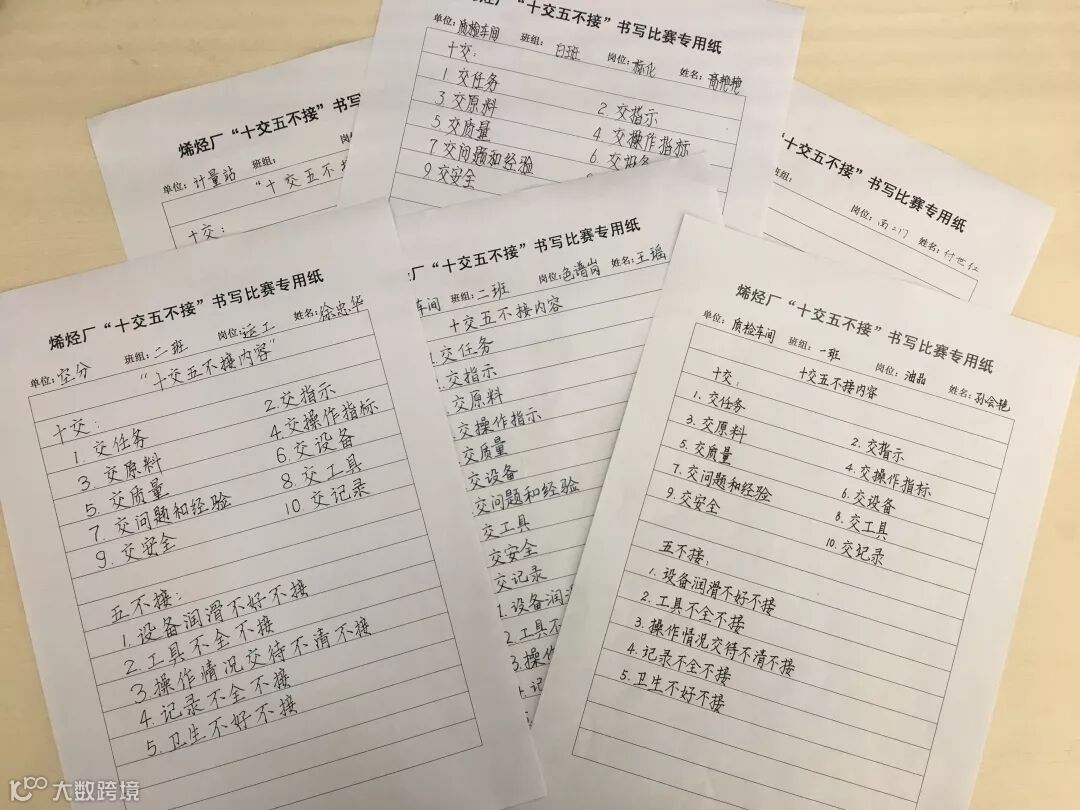 烯烃厂“十交五不接”书写比赛专用纸
单位：质检车间 班组：白班 岗位：标化 姓名：高艳艳
十交：
1 交任务 2. 交指示
3 交原料 4. 交操作指标
5 交质量 6. 交设备
7 交问题和经验
9 交安全
烯烃厂“十交五不接”书写
单位：计量站 班组：
“十交五不接
十交：
“十交五不接”书写比赛专用纸
班组： 岗位：西二门 姓名：付世红
烯烃厂“十交五不接”书写比赛专用纸
单位：空分 班组：二班 岗位：运工 姓名：徐忠华
“十交五不接内容”
十交：
1. 交任务 2. 交指示
3. 交原料 4. 交操作指标
5. 交质量 6. 交设备
7. 交问题和经验 8. 交工具
9. 交安全 10. 交记录
五不接：
1. 设备润滑不好不接
2. 工具不全不接
3. 操作情况交待不清不接
4. 记录不全不接
5. 卫生不好不接
厂“十交五不接”书写比赛专用纸
车间 班组：二班 岗位：色谱岗 姓名：王瑶
十交五不接内容
交任务
交指示
交原料
交操作指示
交质量
交设备
交问题和经验
交工具
交安全
交记录
1. 设备润
2. 工具不
3. 操作
4. 记
烯烃厂“十交五不接”书写比赛专用纸
单位：质检车间 班组：一班 岗位：油品 姓名：孙会艳
十交： 十交五不接内容
1. 交任务 2. 交指示
3. 交原料 4. 交操作指标
5. 交质量 6. 交设备
7. 交问题和经验 8. 交工具
9. 交安全 10. 交记录
五不接：
1. 设备润滑不好不接
2. 工具不全不接
3. 操作情况交待不清不接
4. 记录不全不接
5. 卫生不好不接
大数跨境